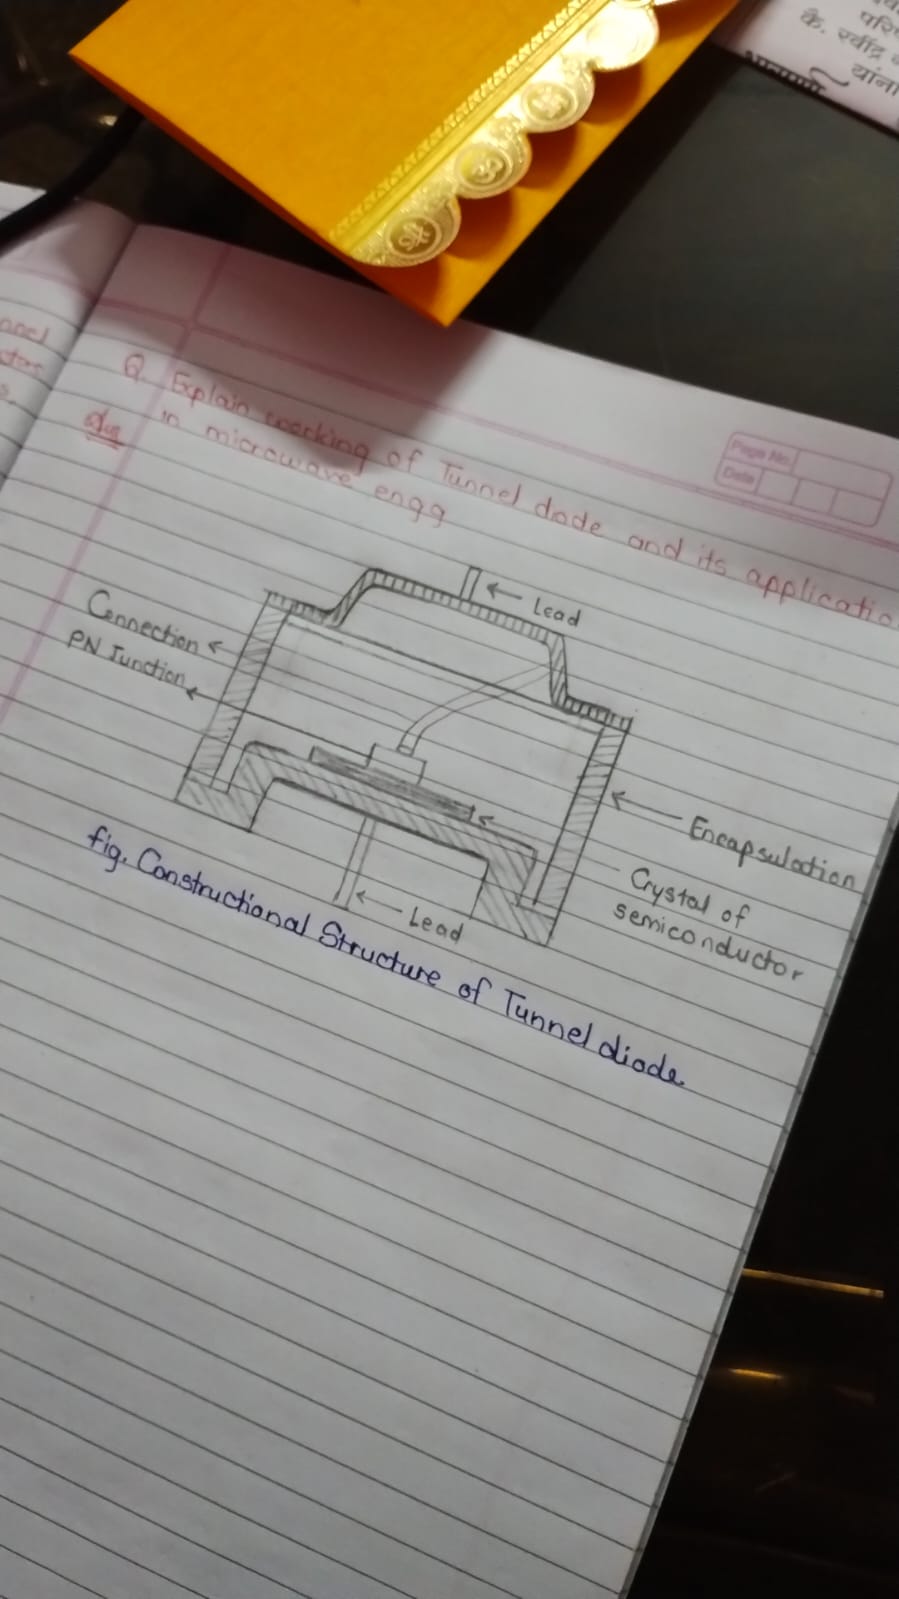 परि
के. रवींद्र
यांना
nnel
Q. Explain working of Tunnel diode and its applicatio
Ans in microwave engg
Page No.
Date
Lead
Connection
PN Junction
Encapsulation
Crystal of
semiconductor
Lead
fig. Constructional Structure of Tunnel diode.